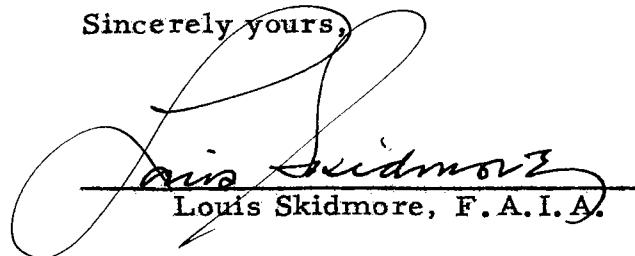 Sincerely yours,
Louis Skidmore
Louis Skidmore, F.A.I.A.